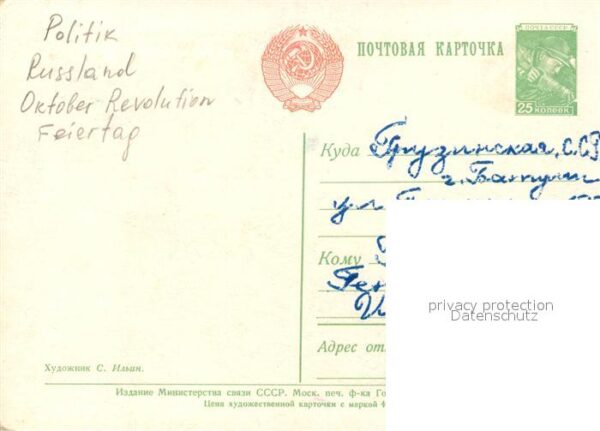 Politik
Russland
Oktober Revolution
Feiertag
ПОЧТА СССР
25 КОПЕЕК
ПОЧТОВАЯ КАРТОЧКА
Куда Грузинская, ССР
г. Батуми
ул
Кому
privacy protection
Datenschutz
Адрес от
Художник С. Ильин.
Издание Министерства связи СССР. Моск. печ. ф-ка Го
Цена художественной карточки с маркой 4